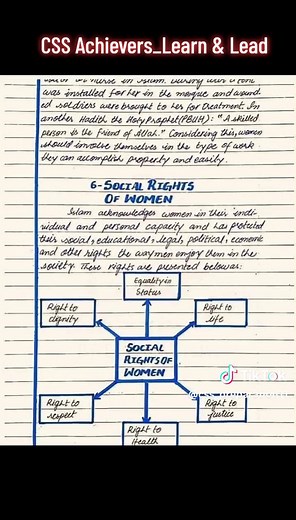 CSS Achievers_Learn & Lead
was installed for her in the mosque and wound
ed soldiers were brought to her for treatment. In
another Hadith the Holy Prophet(PBUH): "A skilled
person is the friend of Allah." Considering this, women
should involve themselves in the type of work
they can accomplish property and easily.
6-SOCIAL RIGHTS
OF WOMEN
Islam acknowledges women in their indi-
vidual and personal capacity and has protected
their social, educational, legal, political, economic
and other rights the way men enjoy them in the
society. These rights are presented below as:
Equality in
Status
Right to
dignity
Right to
life
SOCIAL
RIGHTS OF
WOMEN
TikTok
Right to
respect
Right to
justice
Right to
Health